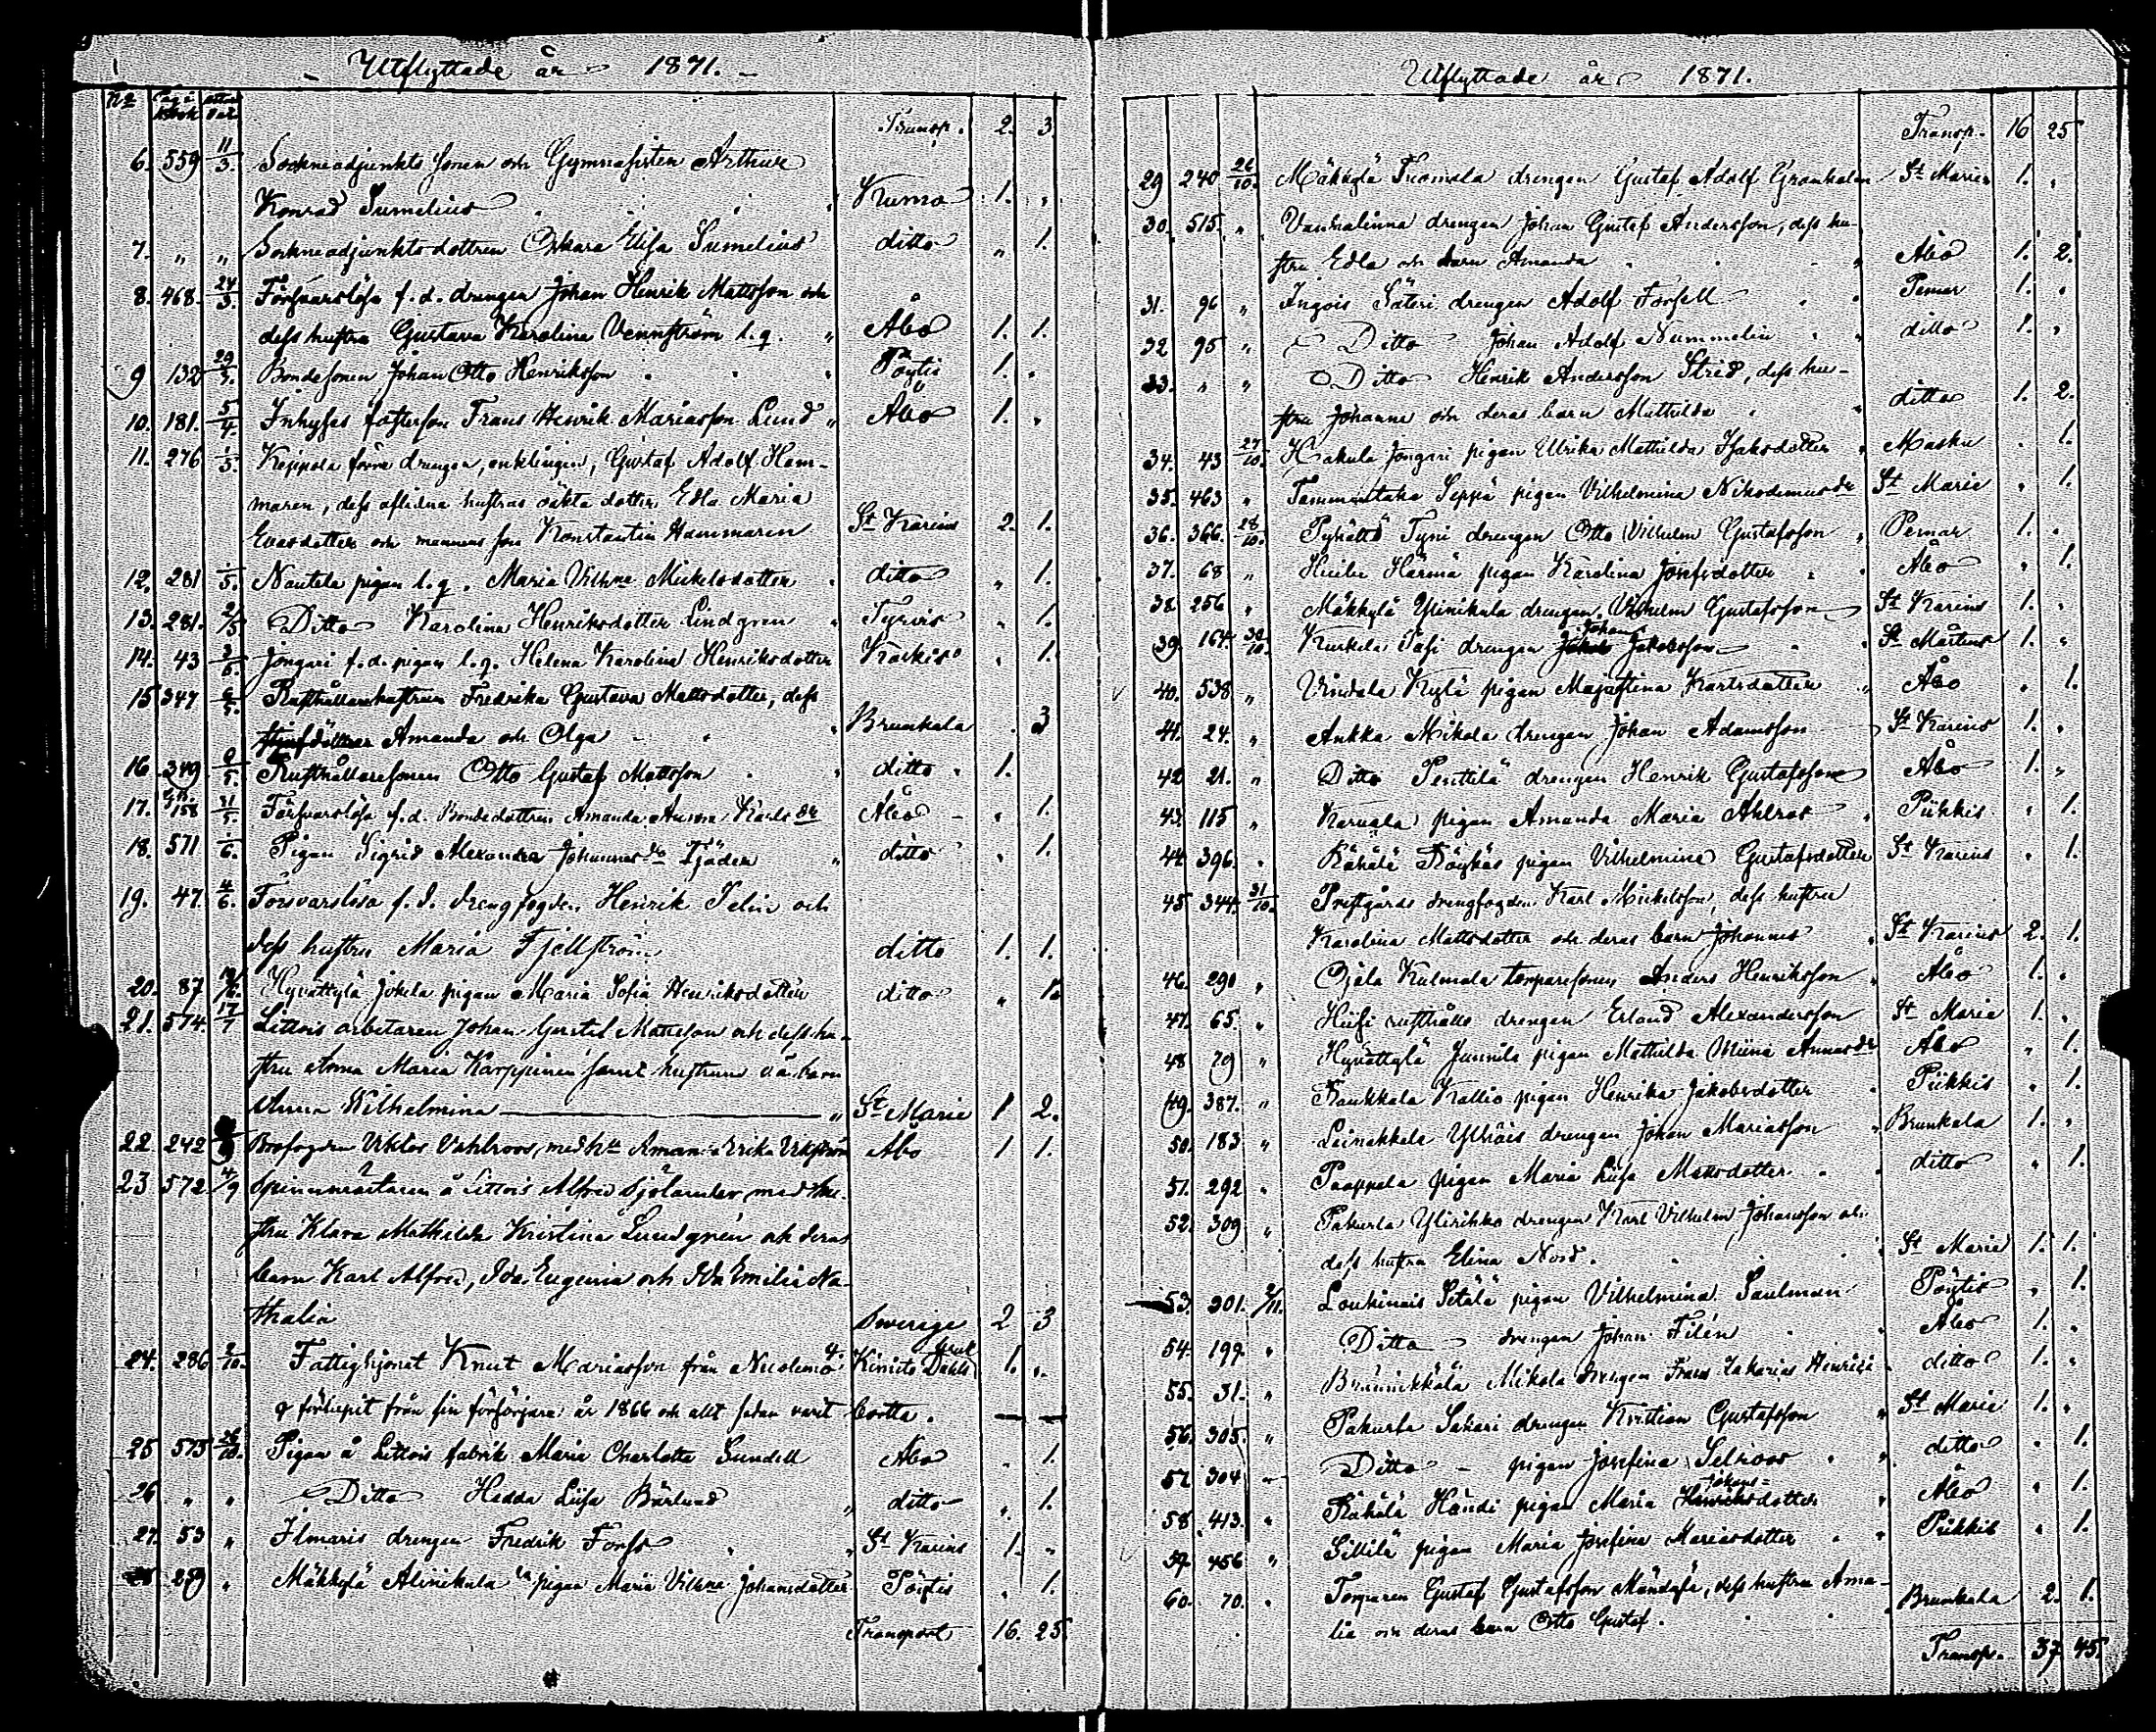 Utflyttade år 1871.
No Pag. i bok attest. dat.
Transp. 2. 3.
6. 559 11/3. Sockneadjunkts sonen och Gymnasisten Arthur
Konrad Sumelius Kumo 1. "
7. " " Sockneadjunktsdottren Oskara Elisa Sumelius ditto " 1.
8. 468. 24/3. Försvarslösa f. d. drengen Johan Henrik Mattsson och
dess hustru Gustava Karolina Vennström l. q. " Åbo 1. 1.
9 132 29/3. Bondesonen Johan Otto Henriksson Pöytis 1. "
10. 181. 5/4. Inhyses Frans Henrik Mariasson Lund " Åbo 1. "
11. 276 1/5. förre drengen, enklingen, Gustaf Adolf Ham-
maren, dess aflidna hustrus oäkta dotter Edla Maria
Evasdotter och mannens son Konstantin Hammaren St Karins 2. 1.
12. 281 1/5. Nautela pigan l. q. Maria Vilhna Mickelsdotter ditto " 1.
13. 281. 2/5. Ditto Karolina Henriksdotter Lindgren " Tyrvis " 1.
14. 43 3/5. Jongari f. d. pigan l. q. Helena Karolina Henriksdotter Karkis " 1.
15 347 6/5. Rusthållarehustrun Fredrika Gustava Mattsdotter, dess
Amanda och Olga " Brunkala . 3
16. 349 9/5. Rusthållaresonen Otto Gustaf Mattsson " ditto 1.
17. 158 31/5. Försvarslösa f. d. Bondedottren Amanda Aurora Karlsdr Åbo " 1.
18. 571 1/6. Pigan Sigrid Alexandra Johannesdr Tjäder " ditto " 1.
19. 47. 4/6. Försvarslösa f. d. drengfogden Henrik Selin och
dess hustru Maria Fjellström ditto 1. 1.
20. 87 Hyvättylä Jokela pigan Maria Sofia Henriksdotter ditto " 1.
21. 574. 17/7 Littois arbetaren Johan Gustaf Mattsson och dess hu-
stru Anna Maria Karppinen samt hustruns oä barn
Anna Wilhelmina " St Marie 1 2.
22. 242 Brofogden Viktor Vahlroos, med hu Åbo 1 1.
23 572 4/9 Spinnmästaren å Littois Alfred Sjölander med hu-
stru Klara Mathilda Kristina Lundgrén och deras
barn Karl Alfred, Ida Eugenia och Ida Emilia Na-
thalia Sverige 2 3
24. 286 2/10. Fattighjonet Knut Mariasson från Kimito 1. "
förlupit från sin försörjare år 1866 och allt sedan varit borta.
25 575 26/10. Pigan å Littois fabrik Maria Charlotta Sundell Åbo . 1.
26 " " Ditto Hedda Lisa Bärlund " ditto " 1.
27. 53 " Ilmaris drengen Fredrik Forss " St Karins 1. "
259 " Mäkkylä Alinikula pigan Maria Vilhna Johansdotter Pöytis " 1.
Transport 16. 25.
Utflyttade år 1871.
Transp. 16 25
29 240 26/10. Mäkkylä Tuomola drengen Gustaf Adolf Grönholm St Marie 1. "
30. 515. " Vanhalinna drengen Johan Gustaf Andersson, dess hu-
stru Edla och barn Amanda " Åbo 1. 2.
31. 96 " Ingois Säteri drengen Adolf Forsell Pemar 1. "
32 95 " Ditto Johan Adolf Nummelin " ditto 1. "
33. " " Ditto Henrik Andersson Strid, dess hu-
stru Johanna och deras barn Mathilda " ditto 1. 2.
34. 43 27/10. Hakula Jongari pigan Ulrika Mathilda Isaksdotter " Masku . 1.
35. 463 " Tammentaka Seppä pigan Vilhelmina Nikodemusdr St Marie " 1.
36. 366. 28/10. Pyhältö Tyni drengen Otto Vilhelm Gustafsson " Pemar 1. "
37. 68 " Härmä pigan Karolina Josefsdotter " Åbo " 1.
38. 256 " Mäkkylä Ylinikula drengen Vilhelm Gustafsson St Karins 1. "
39. 164. 30/10. Kurkela Pasi drengen Johan Jakobsson " St Mårtens 1. "
40. 538 " Vindala Kylä pigan Majastina Karlsdotter " Åbo " 1.
41. 24. " Aukka Mikola drengen Johan Adamsson St Karins 1. "
42 21. " Ditto Penttilä drengen Henrik Gustafsson Åbo 1. "
43. 115 " Karvala pigan Amanda Maria Ahlroos " Piikkis " 1.
44 396. " Rähälä Röykäs pigan Vilhelmina Gustafsdotter St Karins " 1.
45 344. 31/10. Prestgårds drengfogden Karl Mickelsson, dess hustru
Karolina Mattsdotter och deras barn Johannes " St Karins 2. 1.
46. 290 " Ojala Kulmala torparesonen Anders Henriksson " Åbo 1. "
47. 65. " Hiisi rusthålls drengen Erland Alexandersson St Marie 1. "
48 79 " Hyvättylä Junnila pigan Mathilda Miina Annasdr Åbo " 1.
49. 387. " Raukkala Kallio pigan Henrika Jakobsdotter Piikkis " 1.
50. 183 " Leinakkala Ylhäis drengen Johan Mariasson " Brunkala 1. "
51. 292 " Paappala pigan Maria Lisa Mattsdotter ditto " 1.
52. 309 " Pakurla Ylirihko drengen Karl Vilhelm Johansson och
dess hustru Elina Nord. St Marie 1. 1.
53. 301. 2/11. Loukinais Setälä pigan Vilhelmina Saulman Pöytis " 1.
54. 199. " Ditto drengen Johan Filén Åbo 1. "
55. 31. " Brunnikkala Mikola drengen Frans Zakarias Henrici ditto 1. "
56. 305. " Pakurla Sakari drengen Kristian Gustafsson " St Marie 1. "
57. 304 " Ditto pigan Josefina Selroos " ditto . 1.
58. 413. " Rähälä Händi pigan Maria Johansdotter " Åbo . 1.
59. 456 " Sillilä pigan Maria Josefina Mariasdotter " Piikkis " 1.
60. 70. " Torparen Gustaf Gustafsson Mändälä, dess hustru Ama-
lia och deras barn Otto Gustaf. Brunkala 2. 1.
Transp. 37. 45.